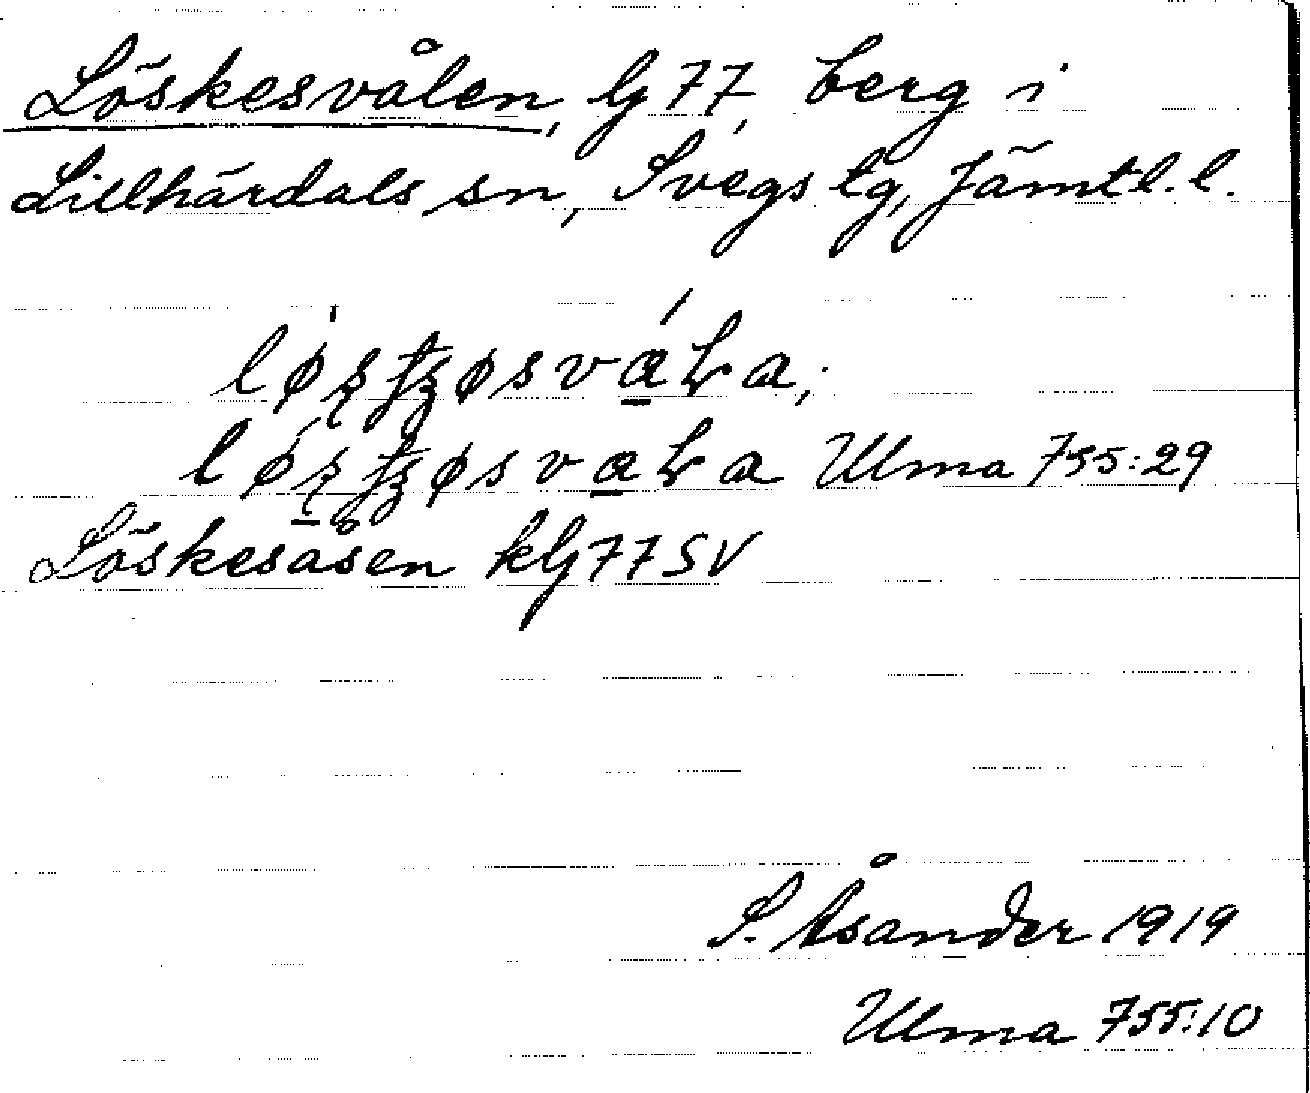 Löskesvålen, G 77, berg i
Lillhärdals sn, Svegs tg, Jämtl. l.
Ulma 755:29
Löskesåsen kG77SV
S. Åsander 1919
Ulma 755:10